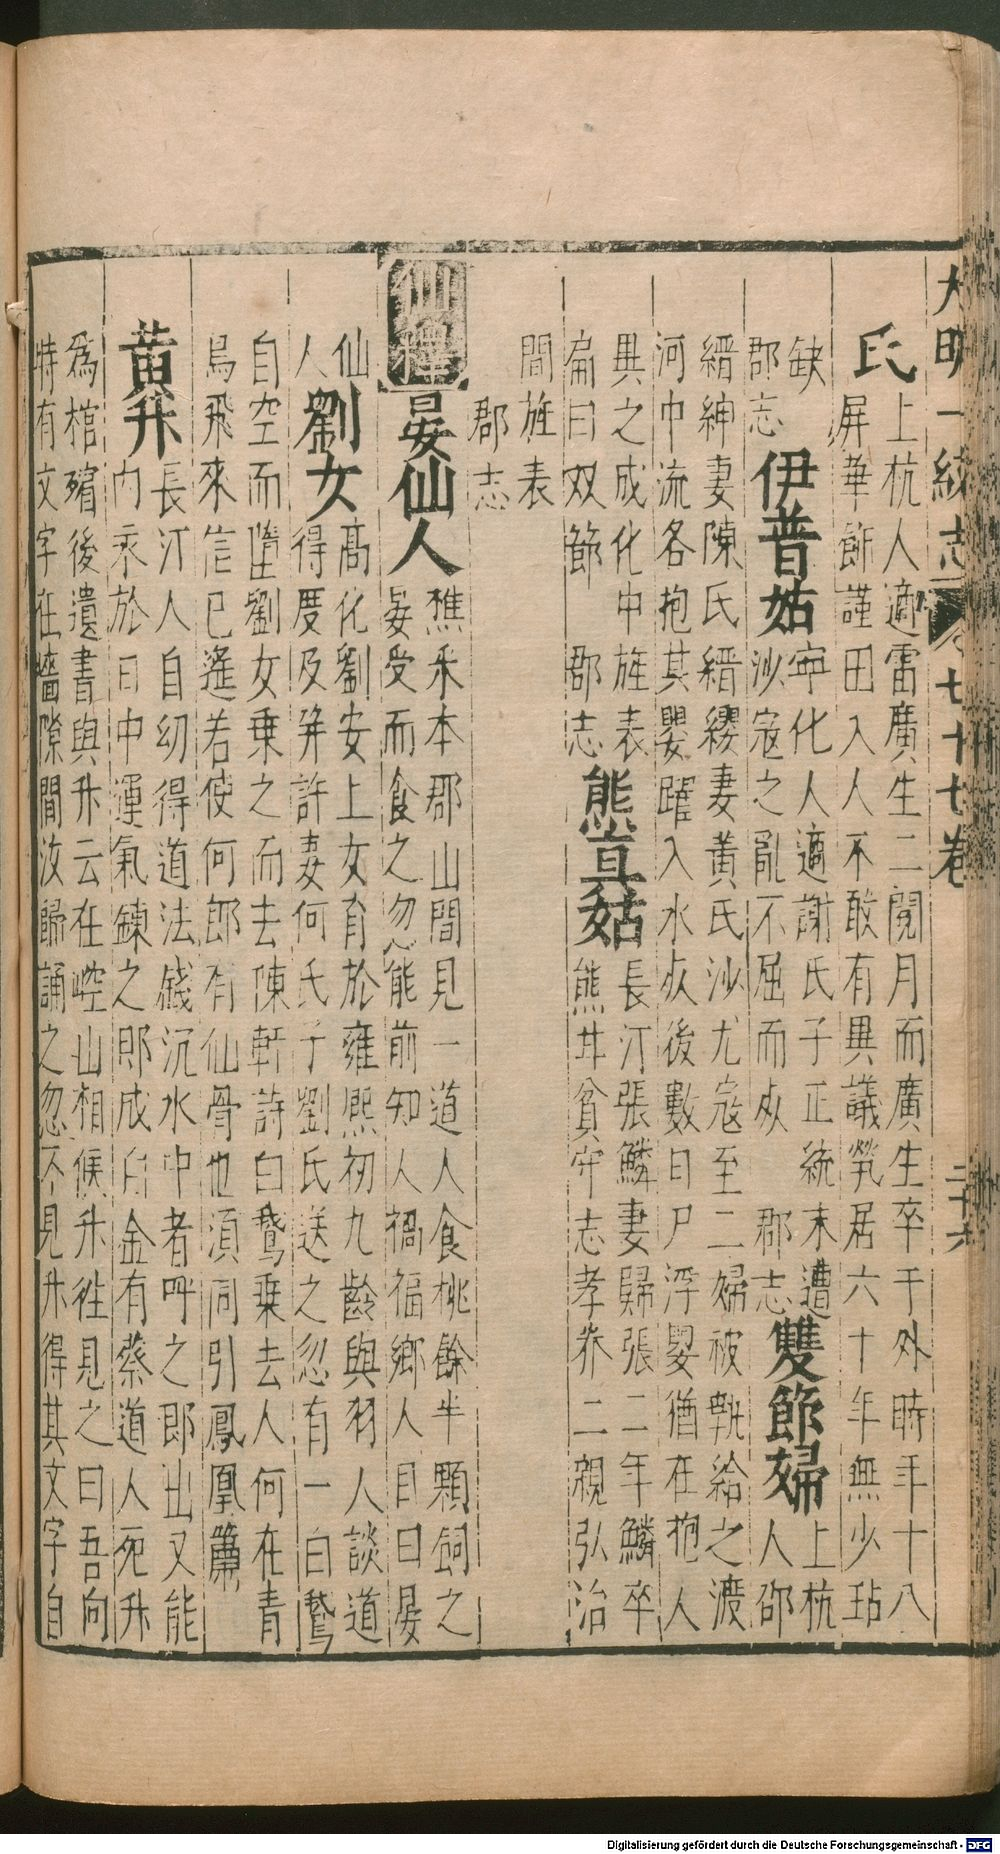 大明一統志
卷七十七卷
二十六
氏
上杭人適雷廣生二閱月而廣生卒于外時年十八
屏華飾謹田入人不敢有異議煢居六十年無少玷
缺
郡志
伊普姑
寧化人適謝氏子正統末遭
沙寇之亂不屈而死 郡志
雙節婦
上杭
人邵
縉紳妻陳氏縉綬妻黃氏沙尤寇至二婦被執給之渡
河中流各抱其嬰躍入水死後數日尸浮嬰猶在抱人
異之成化中旌表
扁曰双節 郡志
熊真姑
長汀張鱗妻歸張二年鱗卒
熊甘貧守志孝养二親弘治
間旌表
郡志
仙釋
晋晏仙人
樵采本郡山間見一道人食桃餘半顆飼之
晏受而食之忽能前知人禍福鄉人目曰晏
仙
人
劉女
高化劉安上女育於雍熙初九齡與羽人談道
得度及笄許妻何氏子劉氏送之忽有一白鵞
自空而墮劉女乗之而去陳軒詩白鵞乗去人何在青
鳥飛來信已遙若使何郎有仙骨也須同引鳳凰簫
黄升
長汀人自幼得道法錢沉水中者呼之即出又能
内汞於日中運氣鍊之即成白金有蔡道人死升
為棺殯後遺書與升云在崆山相候升往見之曰吾向
特有文字在墻隙間汝歸誦之忽不見升得其文字自
Digitalisierung gefördert durch die Deutsche Forschungsgemeinschaft - DFG